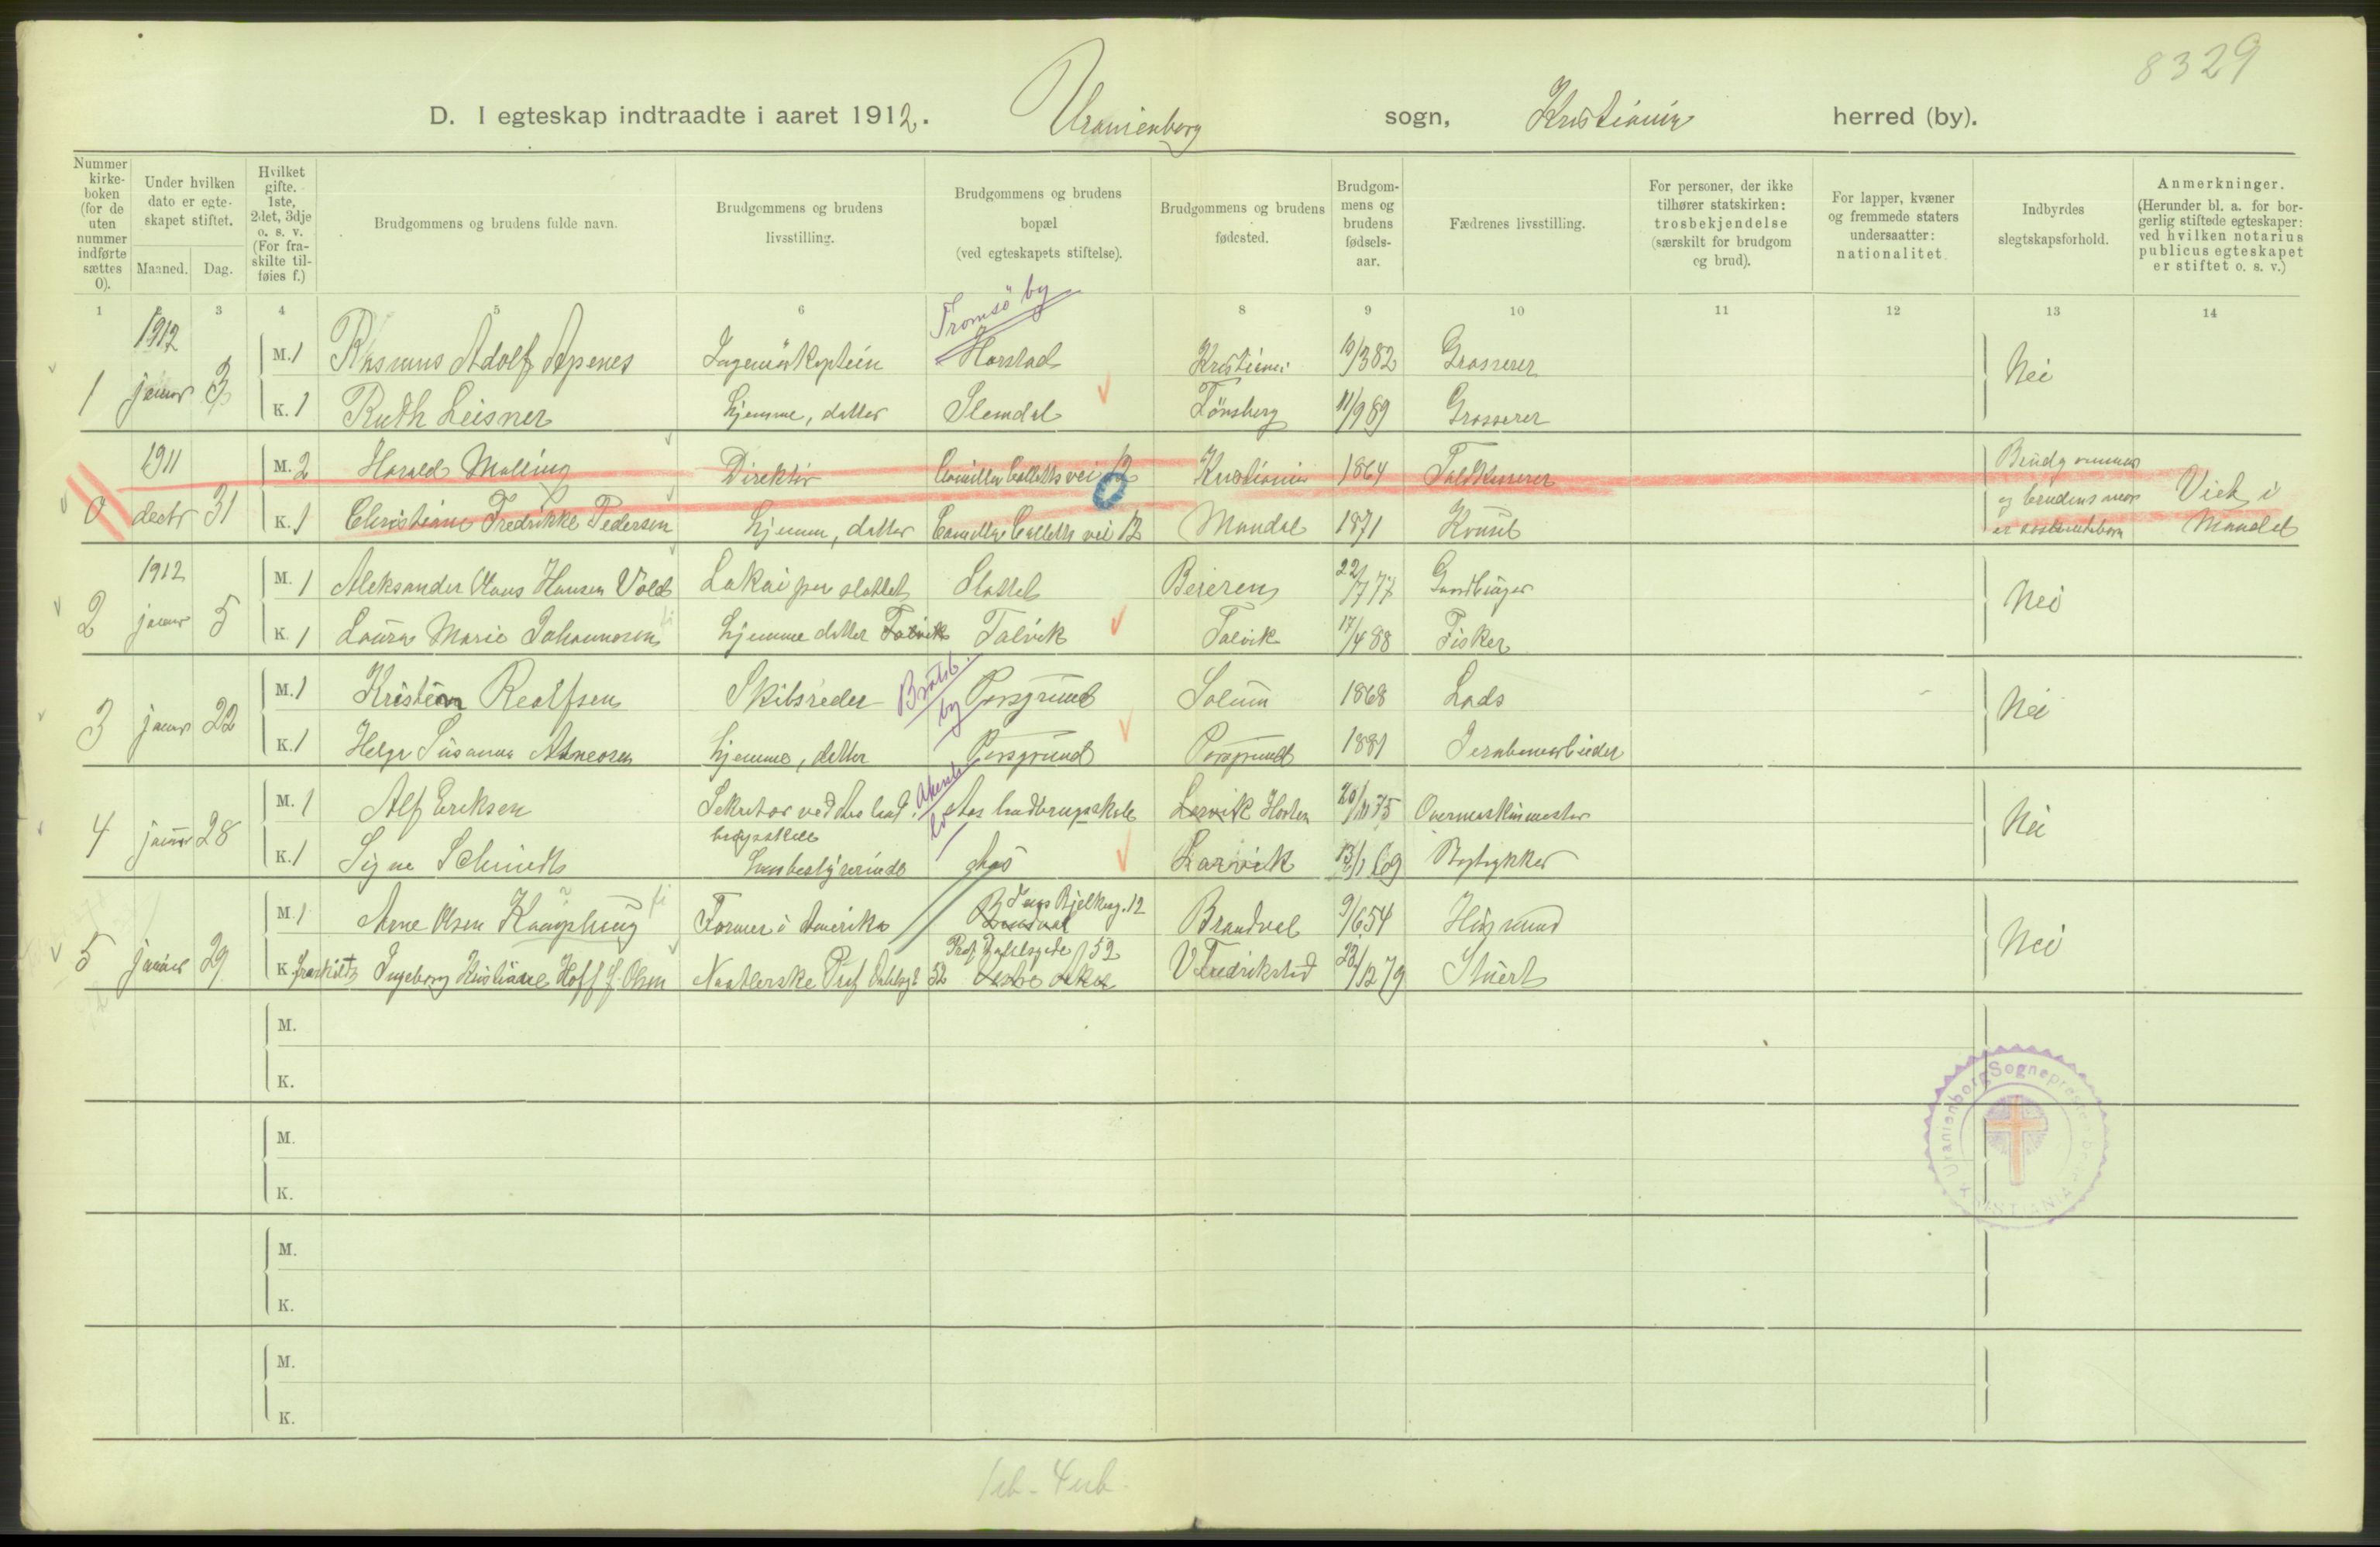 8329
D. I egteskap indtraadte i aaret 1912. Uranienborg sogn, Kristiania herred (by).
Nummer kirke-boken (for de uten nummer indførte sættes 0).
Under hvilken dato er egte-skapet stiftet.
Maaned. Dag.
Hvilket gifte. 1ste, 2det, 3dje o. s. v. (For fra-skilte til-føies f.)
Brudgommens og brudens fulde navn.
Brudgommens og brudens livsstilling.
Brudgommens og brudens bopæl (ved egteskapets stiftelse).
Brudgommens og brudens fødested.
Brudgom-mens og brudens fødsels-aar.
Fædrenes livsstilling.
For personer, der ikke tilhører statskirken: trosbekjendelse (særskilt for brudgom og brud).
For lapper, kvæner og fremmede staters undersaatter: nationalitet.
Indbyrdes slegtskapsforhold.
Anmerkninger. (Herunder bl. a. for bor-gerlig stiftede egteskaper: ved hvilken notarius publicus egteskapet er stiftet o. s. v.)
1 3 4 5 6 8 9 10 11 12 13 14
Tromsö by
1912
M. 1 Rasmus Adolf Apenes Ingeniörkaptein Harstad Kristiania 10/3 82 Grosserer
1 januar 3 Nei
K. 1 Ruth Leisner hjemme, datter Slemdal Tönsberg 11/9 89 Grosserer
1911
M. 2 Harald Malling Direktör Camilla Colletts vei 12 Kristiania 1864 Toldkasserer Brudgommen
0 decbr 31 og brudens mor Viet i
K. 1 Christiane Fredrikke Pedersen hjemme, datter Camilla Colletts vei 12 Mandal 1871 Konsul er søskendebarn Mandal
1912
M. 1 Aleksander Claus Hansen Vold Lakai paa slottet Slottet Beieren 22/7 77 Gaardbruger
2 januar 5 Nei
K. 1 Laura Marie Johannesen hjemme datter Talvik Talvik Talvik 17/4 88 Fisker
Bratsb. by
M. 1 Kristian Realfsen Skibsreder Porsgrund Solum 1868 Lods
3 januar 22 Nei
K. 1 Helga Susanna Asneosen hjemme, datter Porsgrund Porsgrund 1881 Jernbanearbeider
Akersh.
M. 1 Alf Eriksen Sekretær ved Aas land- Aas landbrugsskole Larvik Horten 20/11 75 Overmaskinmester
brugsskole
4 januar 28 Nei
K. 1 Signe Schmidt Husbestyrerinde Aas Larvik 13/1 69 Bogtrykker
Jens Bjelkesg. 12
M. 1 Arne Olsen Kaupshaug Farmer i Amerika Brandval Brandval 9/6 54 Husmand
Prof. Dahlsgade 52
5 januar 29 Nei
K. fraskilt Ingeborg Kristiane Hoff f. Olsen Naatlerske Prof. Dahlsgt 52 Vestre Aker V Fredrikstad 23/12 79 Stuert
M.
K.
M.
K.
M.
K.
M.
K.
Uranienborg Sogneprest
KRISTIANIA